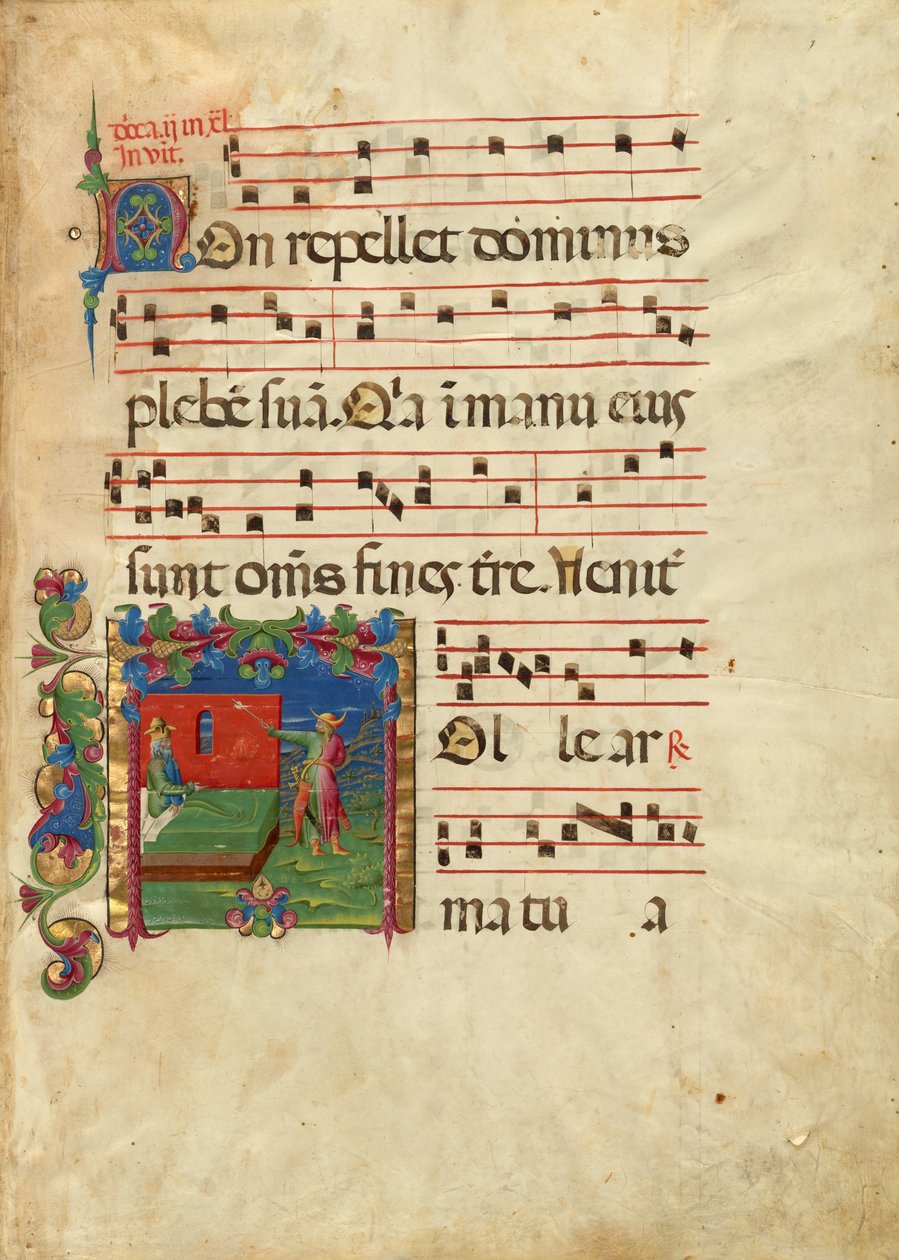 Invit.
Non repellet dominus
plebē suā. Q'a ī manu eius
sunt om̄s fines t̄re. Uenit̄
Tolle ar ℟
ma tu a